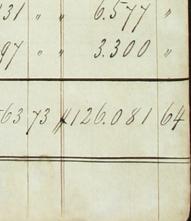 31 " " 6.577 "
97 " " 3.300 "
63 73 $126.081 64